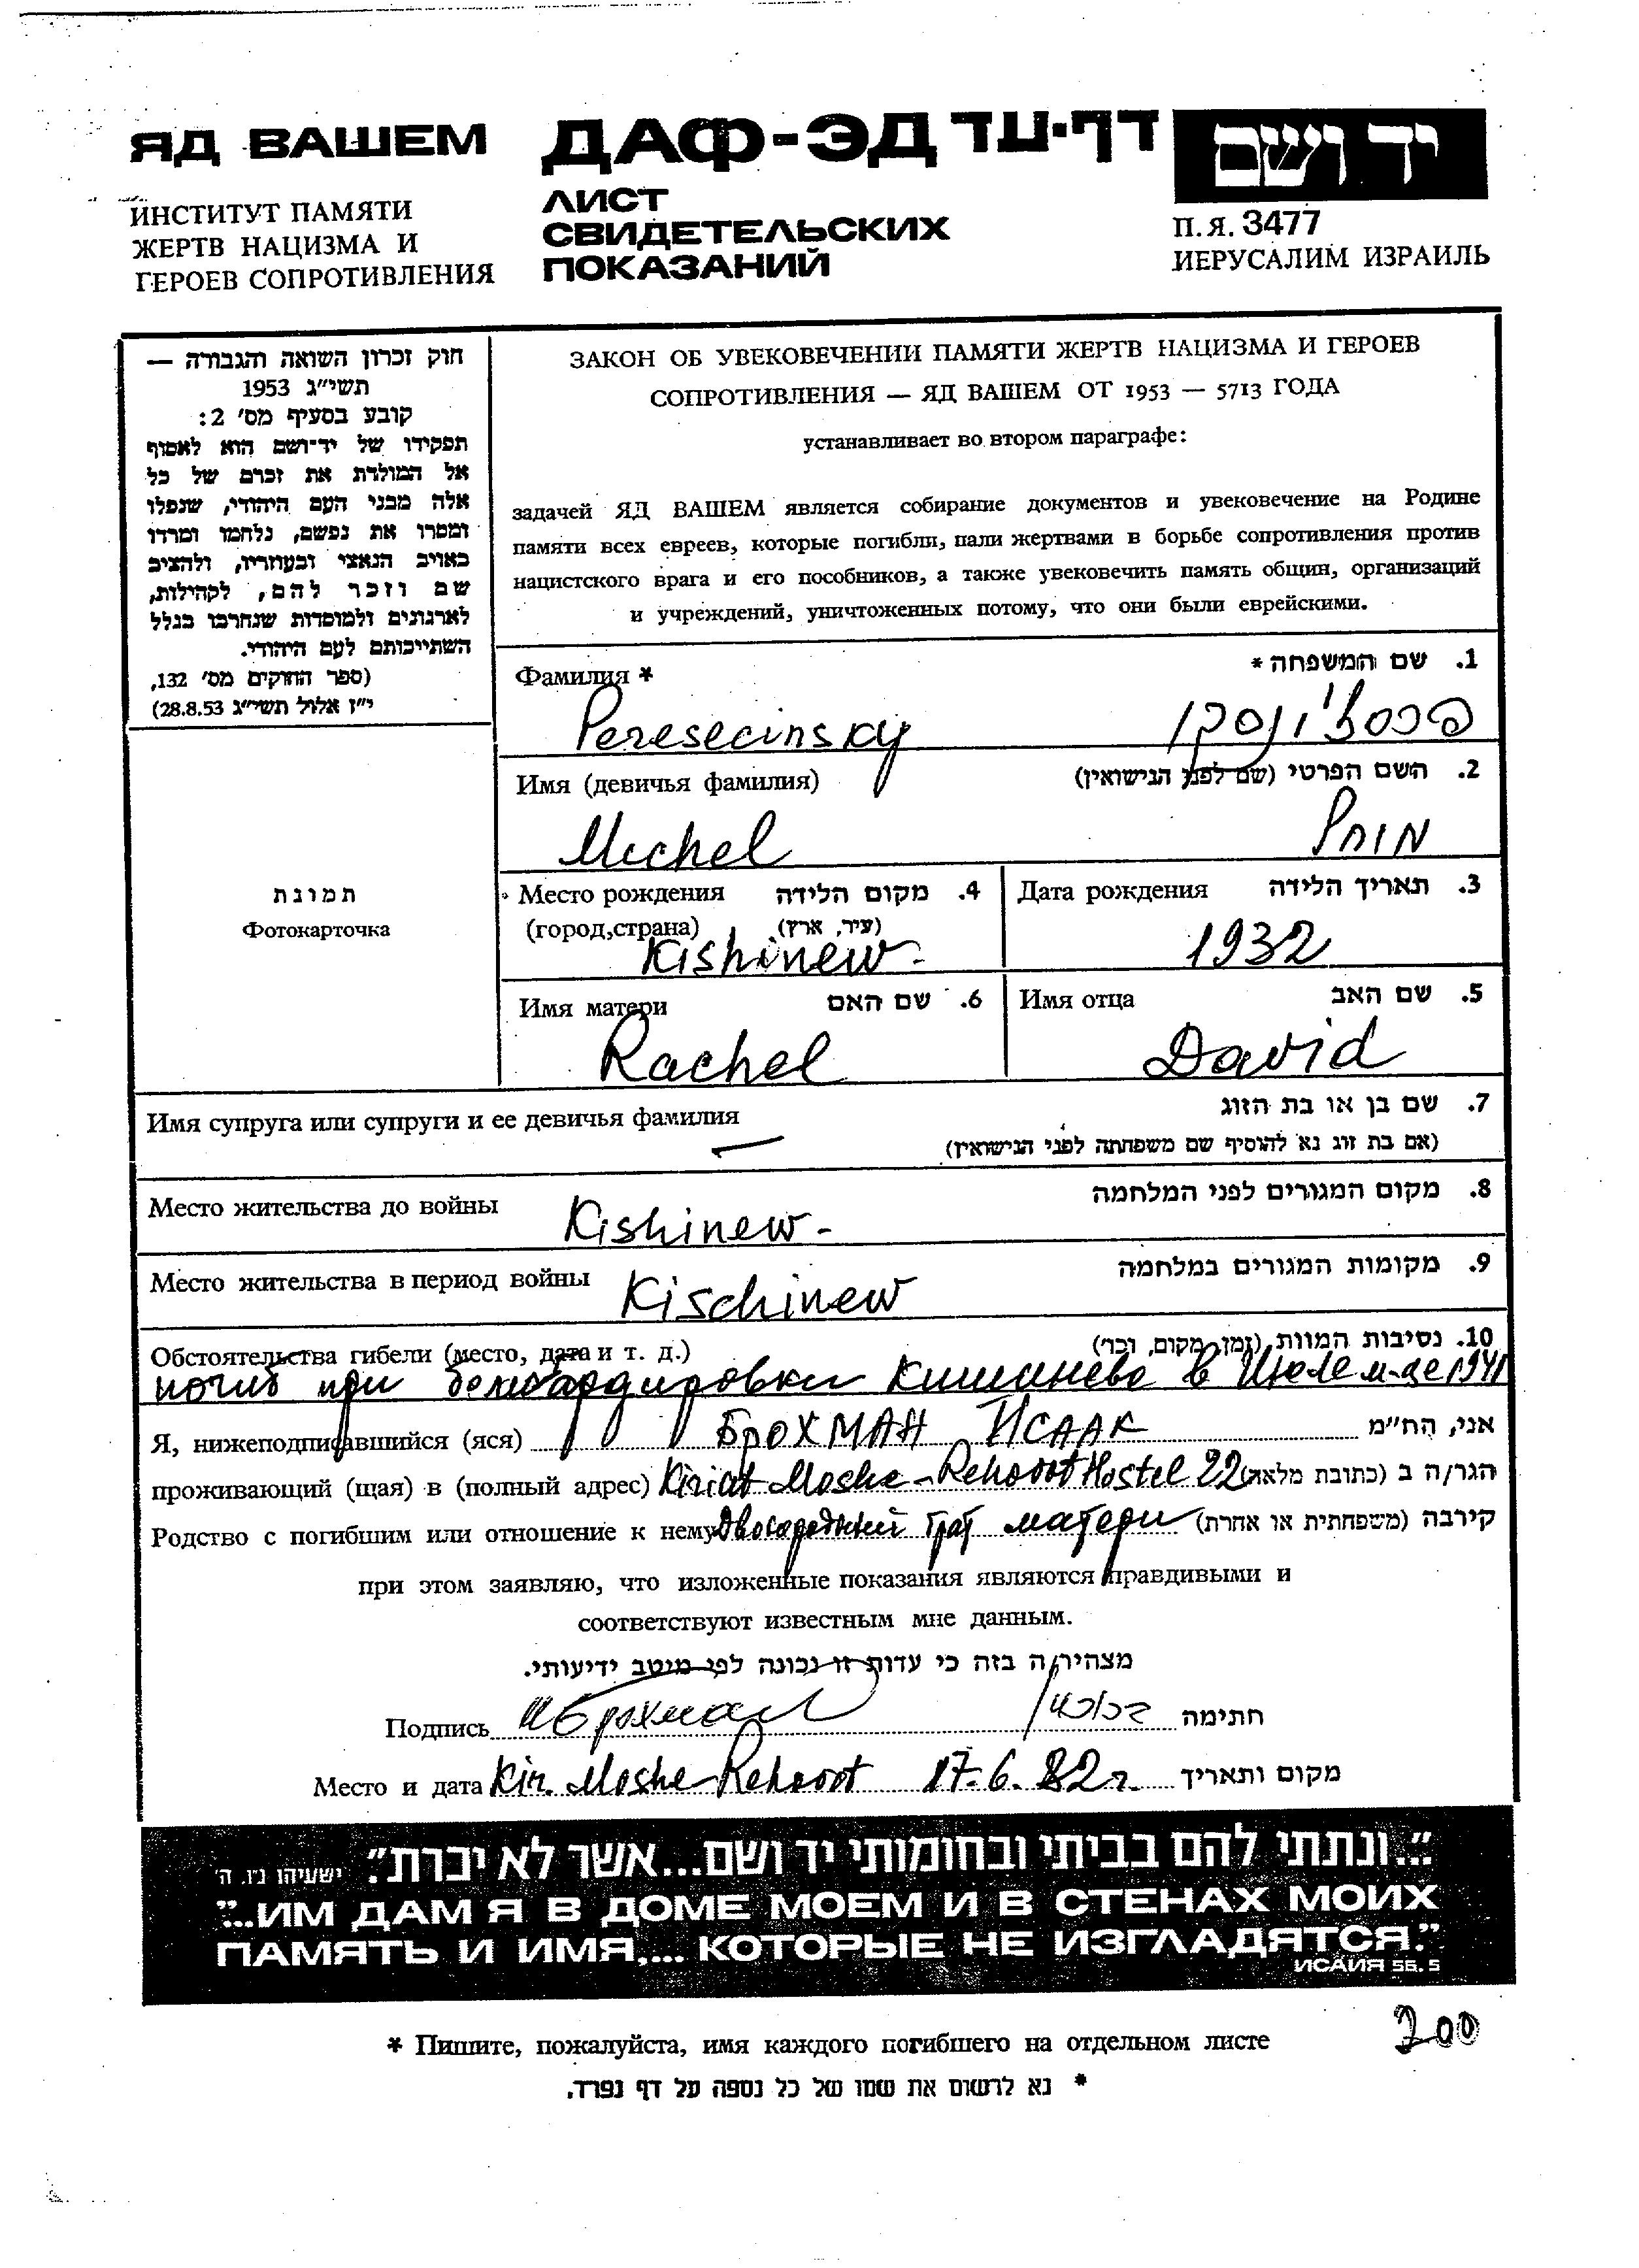 ЯД ВАШЕМ
ИНСТИТУТ ПАМЯТИ
ЖЕРТВ НАЦИЗМА И
ГЕРОЕВ СОПРОТИВЛЕНИЯ
ДАФ-ЭД דף-עד
ЛИСТ
СВИДЕТЕЛЬСКИХ
ПОКАЗАНИЙ
יד ושם
П.Я. 3477
ИЕРУСАЛИМ ИЗРАИЛЬ
חוק זכרון השואה והגבורה —
תשי"ג 1953
קובע בסעיף מס' 2:
תפקידו של יד-ושם הוא לאסוף
אל המולדת את זכרם של כל
אלה מבני העם היהודי, שנפלו
ומסרו את נפשם, נלחמו ומרדו
באויב הנאצי ובעוזריו, ולהציב
שם וזכר להם, לקהילות,
לארגונים ולמוסדות שנחרבו בגלל
השתייכותם לעם היהודי.
(ספר החוקים מס' 132,
י"ז אלול תשי"ג 28.8.53)
ЗАКОН ОБ УВЕКОВЕЧЕНИИ ПАМЯТИ ЖЕРТВ НАЦИЗМА И ГЕРОЕВ
СОПРОТИВЛЕНИЯ — ЯД ВАШЕМ ОТ 1953 — 5713 ГОДА
устанавливает во втором параграфе:
задачей ЯД ВАШЕМ является собирание документов и увековечение на Родине
памяти всех евреев, которые погибли, пали жертвами в борьбе сопротивления против
нацистского врага и его пособников, а также увековечить память общин, организаций
и учреждений, уничтоженных потому, что они были еврейскими.
תמונת
Фотокарточка
Фамилия * 1. שם המשפחה *
Peresecinsky
Имя (девичья фамилия) 2. השם הפרטי (שם לפני הנישואין)
Michel
Место рождения 4. מקום הלידה
(город,страна) (עיר, ארץ)
Kishinew -
Дата рождения 3. תאריך הלידה
1932
Имя матери 6. שם האם
Rachel
Имя отца 5. שם האב
David
Имя супруга или супруги и ее девичья фамилия 7. שם בן או בת הזוג
— (אם בת זוג נא להוסיף שם משפחתה לפני הנישואין)
Место жительства до войны 8. מקום המגורים לפני המלחמה
Kishinew -
Место жительства в период войны 9. מקומות המגורים במלחמה
Kischinew
Обстоятельства гибели (место, дата и т. д.) 10. נסיבות המוות (זמן, מקום, וכו')
погиб при бомбардировки Кишинева в Июле м-це 1941
Я, нижеподписавшийся (яся) БРОХМАН ИСААК אני, הח"מ
проживающий (щая) в (полный адрес) Kiriat Moshe - Rehovot Hostel 22 הגר/ה ב (כתובת מלאה)
Родство с погибшим или отношение к нему Двоюродный брат матери קירבה (משפחתית או אחרת)
при этом заявляю, что изложенные показания являются правдивыми и
соответствуют известным мне данным.
מצהיר/ה בזה כי עדות זו נכונה לפי מיטב ידיעותי.
Подпись Брохман חתימה
Место и дата Kir. Moshe - Rehovot 17.6.82 г. מקום ותאריך
"...ונתתי להם בביתי ובחומותי יד ושם...אשר לא יכרת". ישעיהו נ"ו. ה'
"...ИМ ДАМ Я В ДОМЕ МОЕМ И В СТЕНАХ МОИХ
ПАМЯТЬ И ИМЯ,... КОТОРЫЕ НЕ ИЗГЛАДЯТСЯ."
ИСАИЯ 56.5
200
* Пишите, пожалуйста, имя каждого погибшего на отдельном листе
* נא לרשום את שמו של כל נספה על דף נפרד.